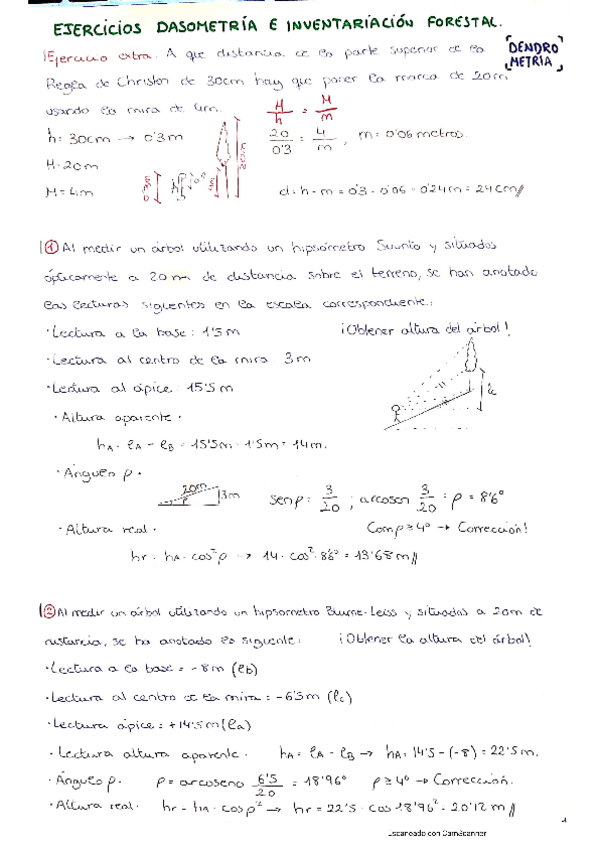 EJERCICIOS DASOMETRÍA E INVENTARIACIÓN FORESTAL.
¡Ejercicio extra. A que distancia de la parte superior de la
DENDRO
METRÍA
Regla de Christen de 30cm hay que poner la marca de 20m
usando la mira de 4m.
H/h = M/m
h= 30cm → 0'3m
20/0'3 = 4/m , m= 0'06 metros.
H= 20m
M= 4m
d= h-m = 0'3 - 0'06 = 0'24m = 24cm//
① Al medir un árbol utilizando un hipsómetro Suunto y situados
ópticamente a 20m de distancia sobre el terreno, se han anotado
las lecturas siguientes en la escala correspondiente:
· Lectura a la base: 1'5m
¡Obtener altura del árbol!
· Lectura al centro de la mira 3m
· Lectura al ápice: 15'5m
· Altura aparente ·
hA = lA - lB = 15'5m - 1'5m = 14m.
· Ángulo p ·
20m
3m
sen p = 3/20 ; arcosen 3/20 = p = 8'6°
· Altura real ·
Com p≥4° → Corrección!
hr = hA · cos²p → 14 · cos² 8'6° = 13'68m//
② Al medir un árbol utilizando un hipsometro Blume-Leiss y situados a 20m de
distancia, se ha anotado lo siguiente:
¡Obtener la altura del árbol!
· Lectura a la base = -8m (lb)
· Lectura al centro de la mira = -6'5m (lc)
· Lectura ápice = +14'5m (la)
· Lectura altura aparente · hA = lA - lB → hA= 14'5 - (-8) = 22'5m.
· Ángulo p · p= arcoseno 6'5/20 = 18'96° p≥4° → Corrección.
· Altura real · hr = hA · cos p² → hr = 22'5 · cos 18'96² = 20'12m//
Escaneado con CamScanner